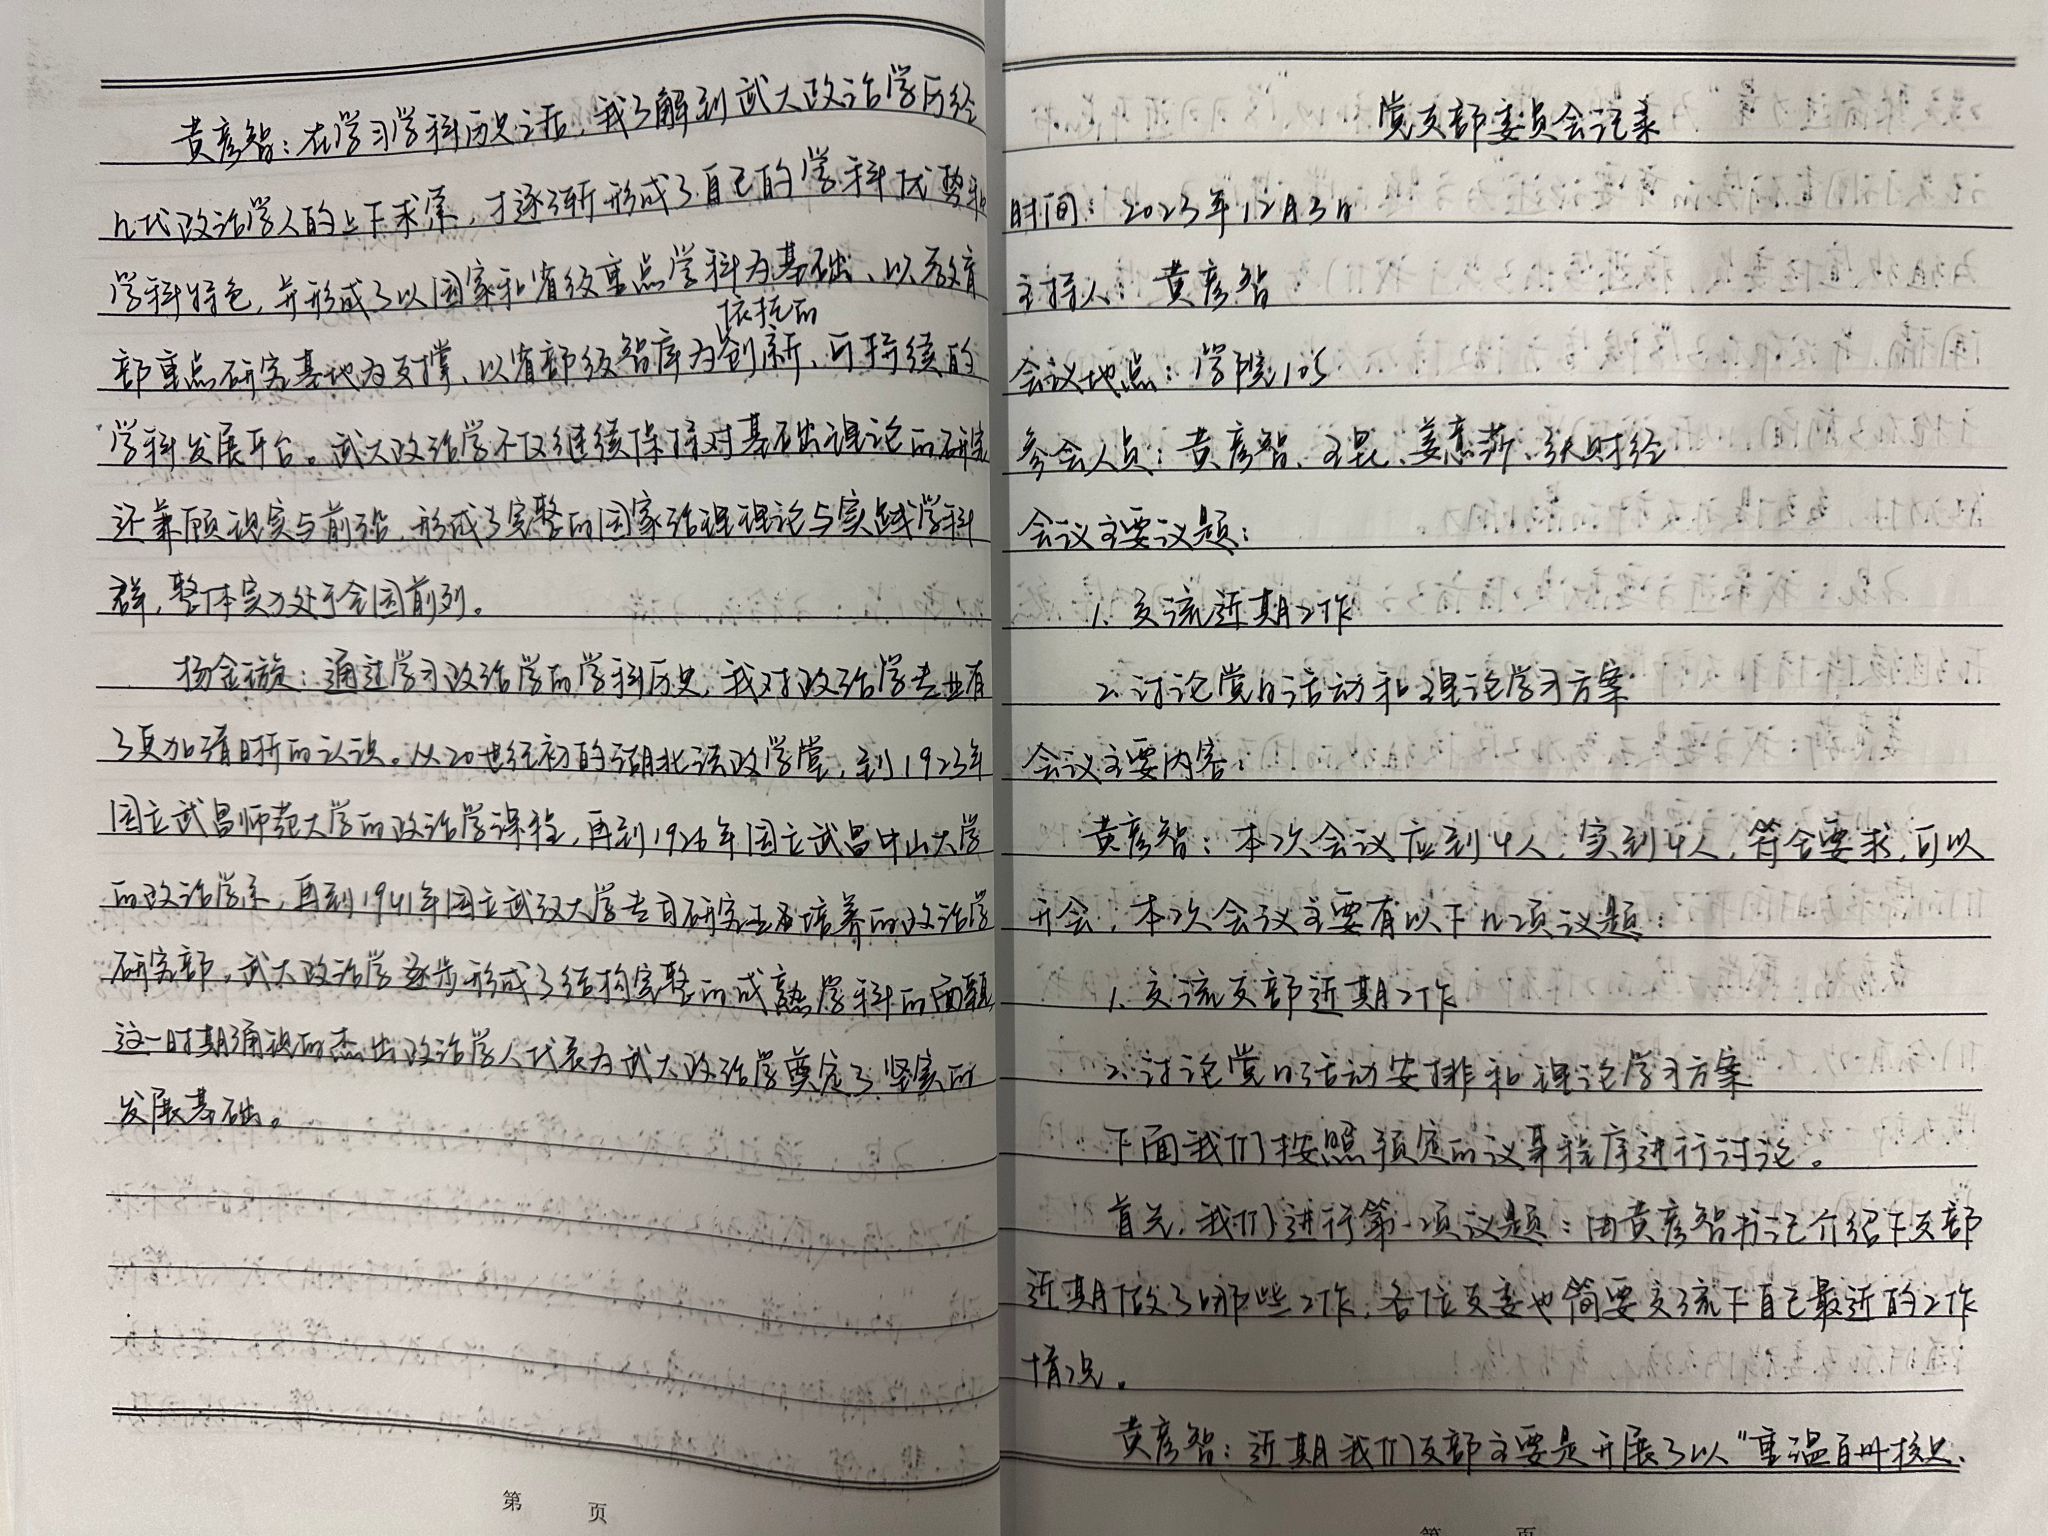 黄彦智：在学习学科历史之后，我了解到武大政治学历经
几代政治学人的上下求索，才逐渐形成了自己的学科优势和
学科特色，并形成了以国家和省级重点学科为基础、以教育
部重点研究基地为支撑、以省部级智库为依托的创新、可持续的
学科发展平台。武大政治学不仅继续保持对基础理论的研究
还兼顾现实与前沿，形成了完整的国家治理理论与实践学科
群，整体实力处于全国前列。
杨金璇：通过学习政治学的学科历史，我对政治学专业有
了更加清晰的认识。从20世纪初的湖北法政学堂，到1923年
国立武昌师范大学的政治学课程，再到1926年国立武昌中山大学
的政治学系，再到1941年国立武汉大学专司研究生培养的政治学
研究部，武大政治学逐步形成了结构完整的成熟学科的面貌
这一时期涌现的杰出政治学人代表为武大政治学奠定了坚实的
发展基础。
第 页
党支部委员会记录
时间：2023年12月3日
主持人：黄彦智
会议地点：学院105
参会人员：黄彦智、王昆、姜惠莎、张财经
会议主要议题：
1. 交流近期工作
2. 讨论党日活动和理论学习方案
会议主要内容：
黄彦智：本次会议应到4人，实到4人，符合要求，可以
开会，本次会议主要有以下几项议题：
1. 交流支部近期工作
2. 讨论党日活动安排和理论学习方案
下面我们按照预定的议事程序进行讨论。
首先，我们进行第一项议题：由黄彦智书记介绍下支部
近期做了哪些工作，各位支委也简要交流下自己最近的工作
情况。
黄彦智：近期我们支部主要是开展了以“重温百卅校史、
第 页